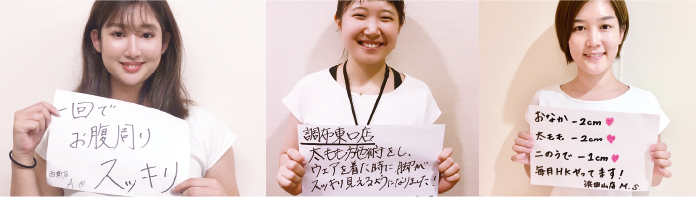 一回で
お腹周り
スッキリ
調布東口店
太もも施術をし、
ウェアを着た時に脚が
スッキリ見えるようになりました!
おなか -2cm♥
太もも -2cm♥
二のうで -1cm♥
毎月HKやってます!
浜田山店 M.S